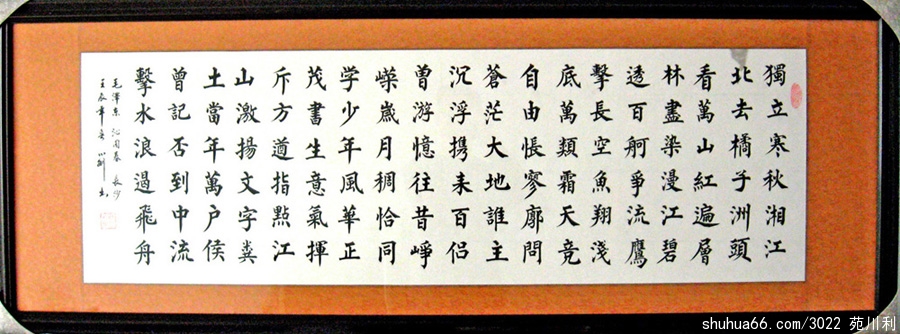 獨立寒秋湘江
北去橘子洲頭
看萬山紅遍層
林盡染漫江碧
透百舸爭流鷹
擊長空魚翔淺
底萬類霜天竞
自由悵寥廓問
蒼茫大地誰主
沉浮携来百侣
曾游憶往昔崢
嶸歲月稠恰同
学少年風華正
茂書生意氣揮
斥方遒指點江
山激揚文字粪
土當年萬户侯
曾記否到中流
擊水浪遏飛舟
毛澤東 沁园春 長沙
壬辰年 川利
shuhua66.com/3022 苑川利